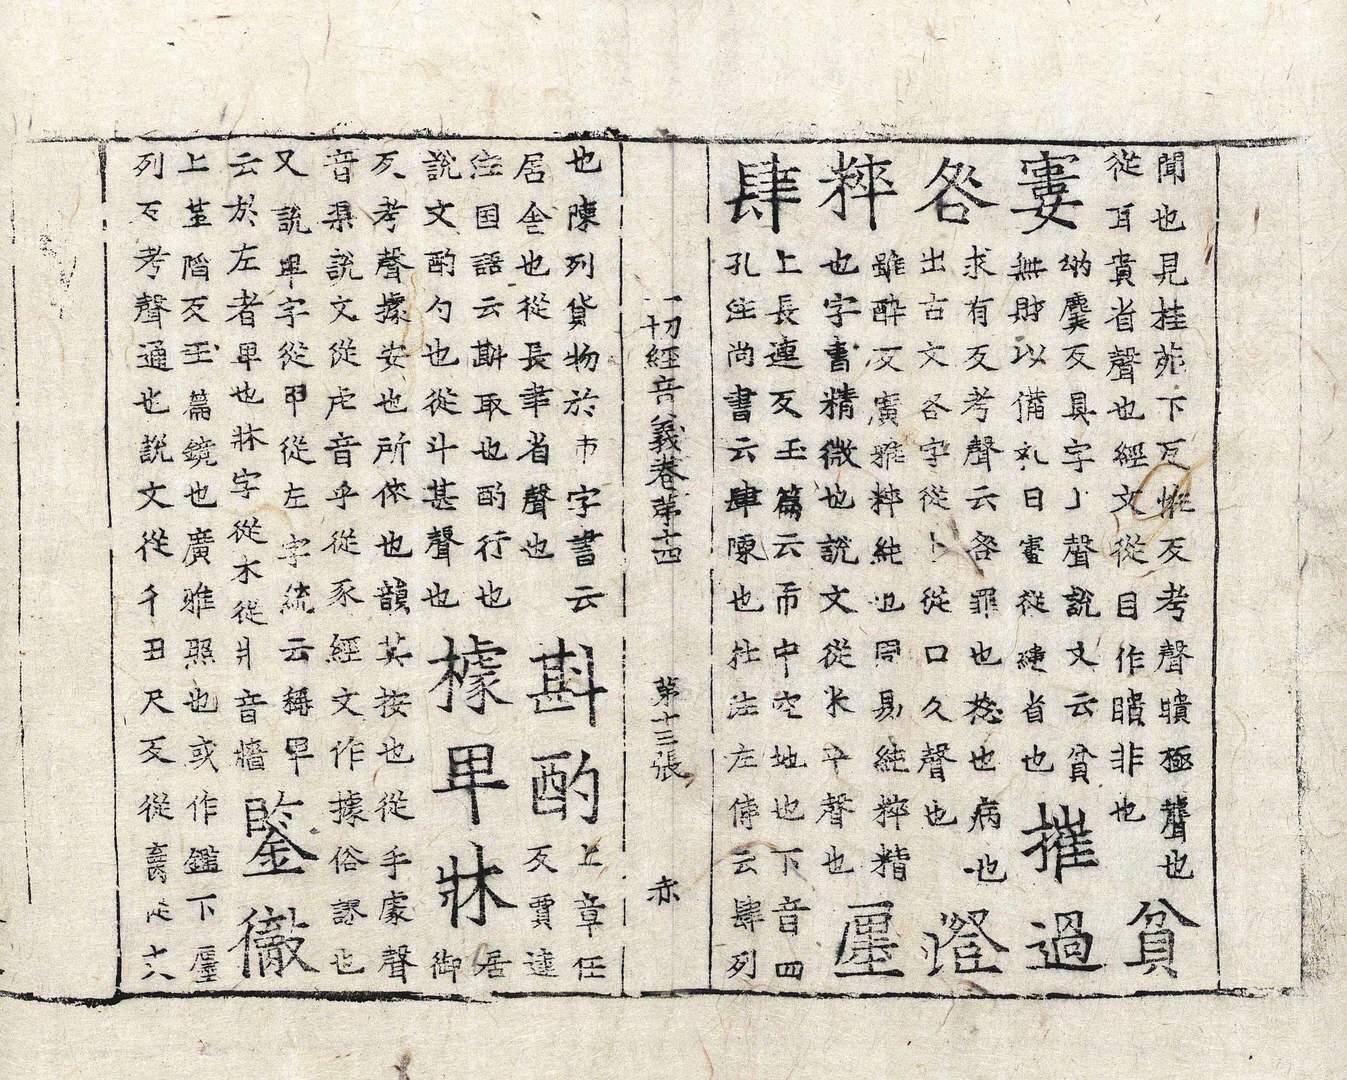 聞也見桂苑下瓦恠反考聲聵極聾也
從耳貴省聲也經文從目作瞶非也
貧
寠
劬麌反具字上聲說文云貧
無財以備礼曰寠從婁省也
摧過
咎
求有反考聲云咎罪也愆也病也
出古文各字從卜從口久聲也
證
粹
雖醉反廣雅粹純也周易純粹精
也字書精微也說文從米卒聲也
㕓
肆
上長連反玉篇云市中空地也下音四
孔注尚書云肆陳也杜注左傳云肆列
一切經音義卷第十四 第十三張 赤
也陳列貨物於市字書云
居舍也從長聿省聲也
斟酌
上章任
反賈逵
注国語云斟取也酌行也
說文酌勺也從斗甚聲也
據卑牀
居
御
反考聲據安也所依也韻英按也從手豦聲
音渠說文從虍音乎從豕經文作據俗謬也
又說卑字從甲從左字統云稱卑
云於左者卑也牀字從木從爿音牆
鑒徹
上監陷反玉篇鏡也廣雅照也或作鑑下㕓
列反考聲通也說文從彳丑尺反從鬲從